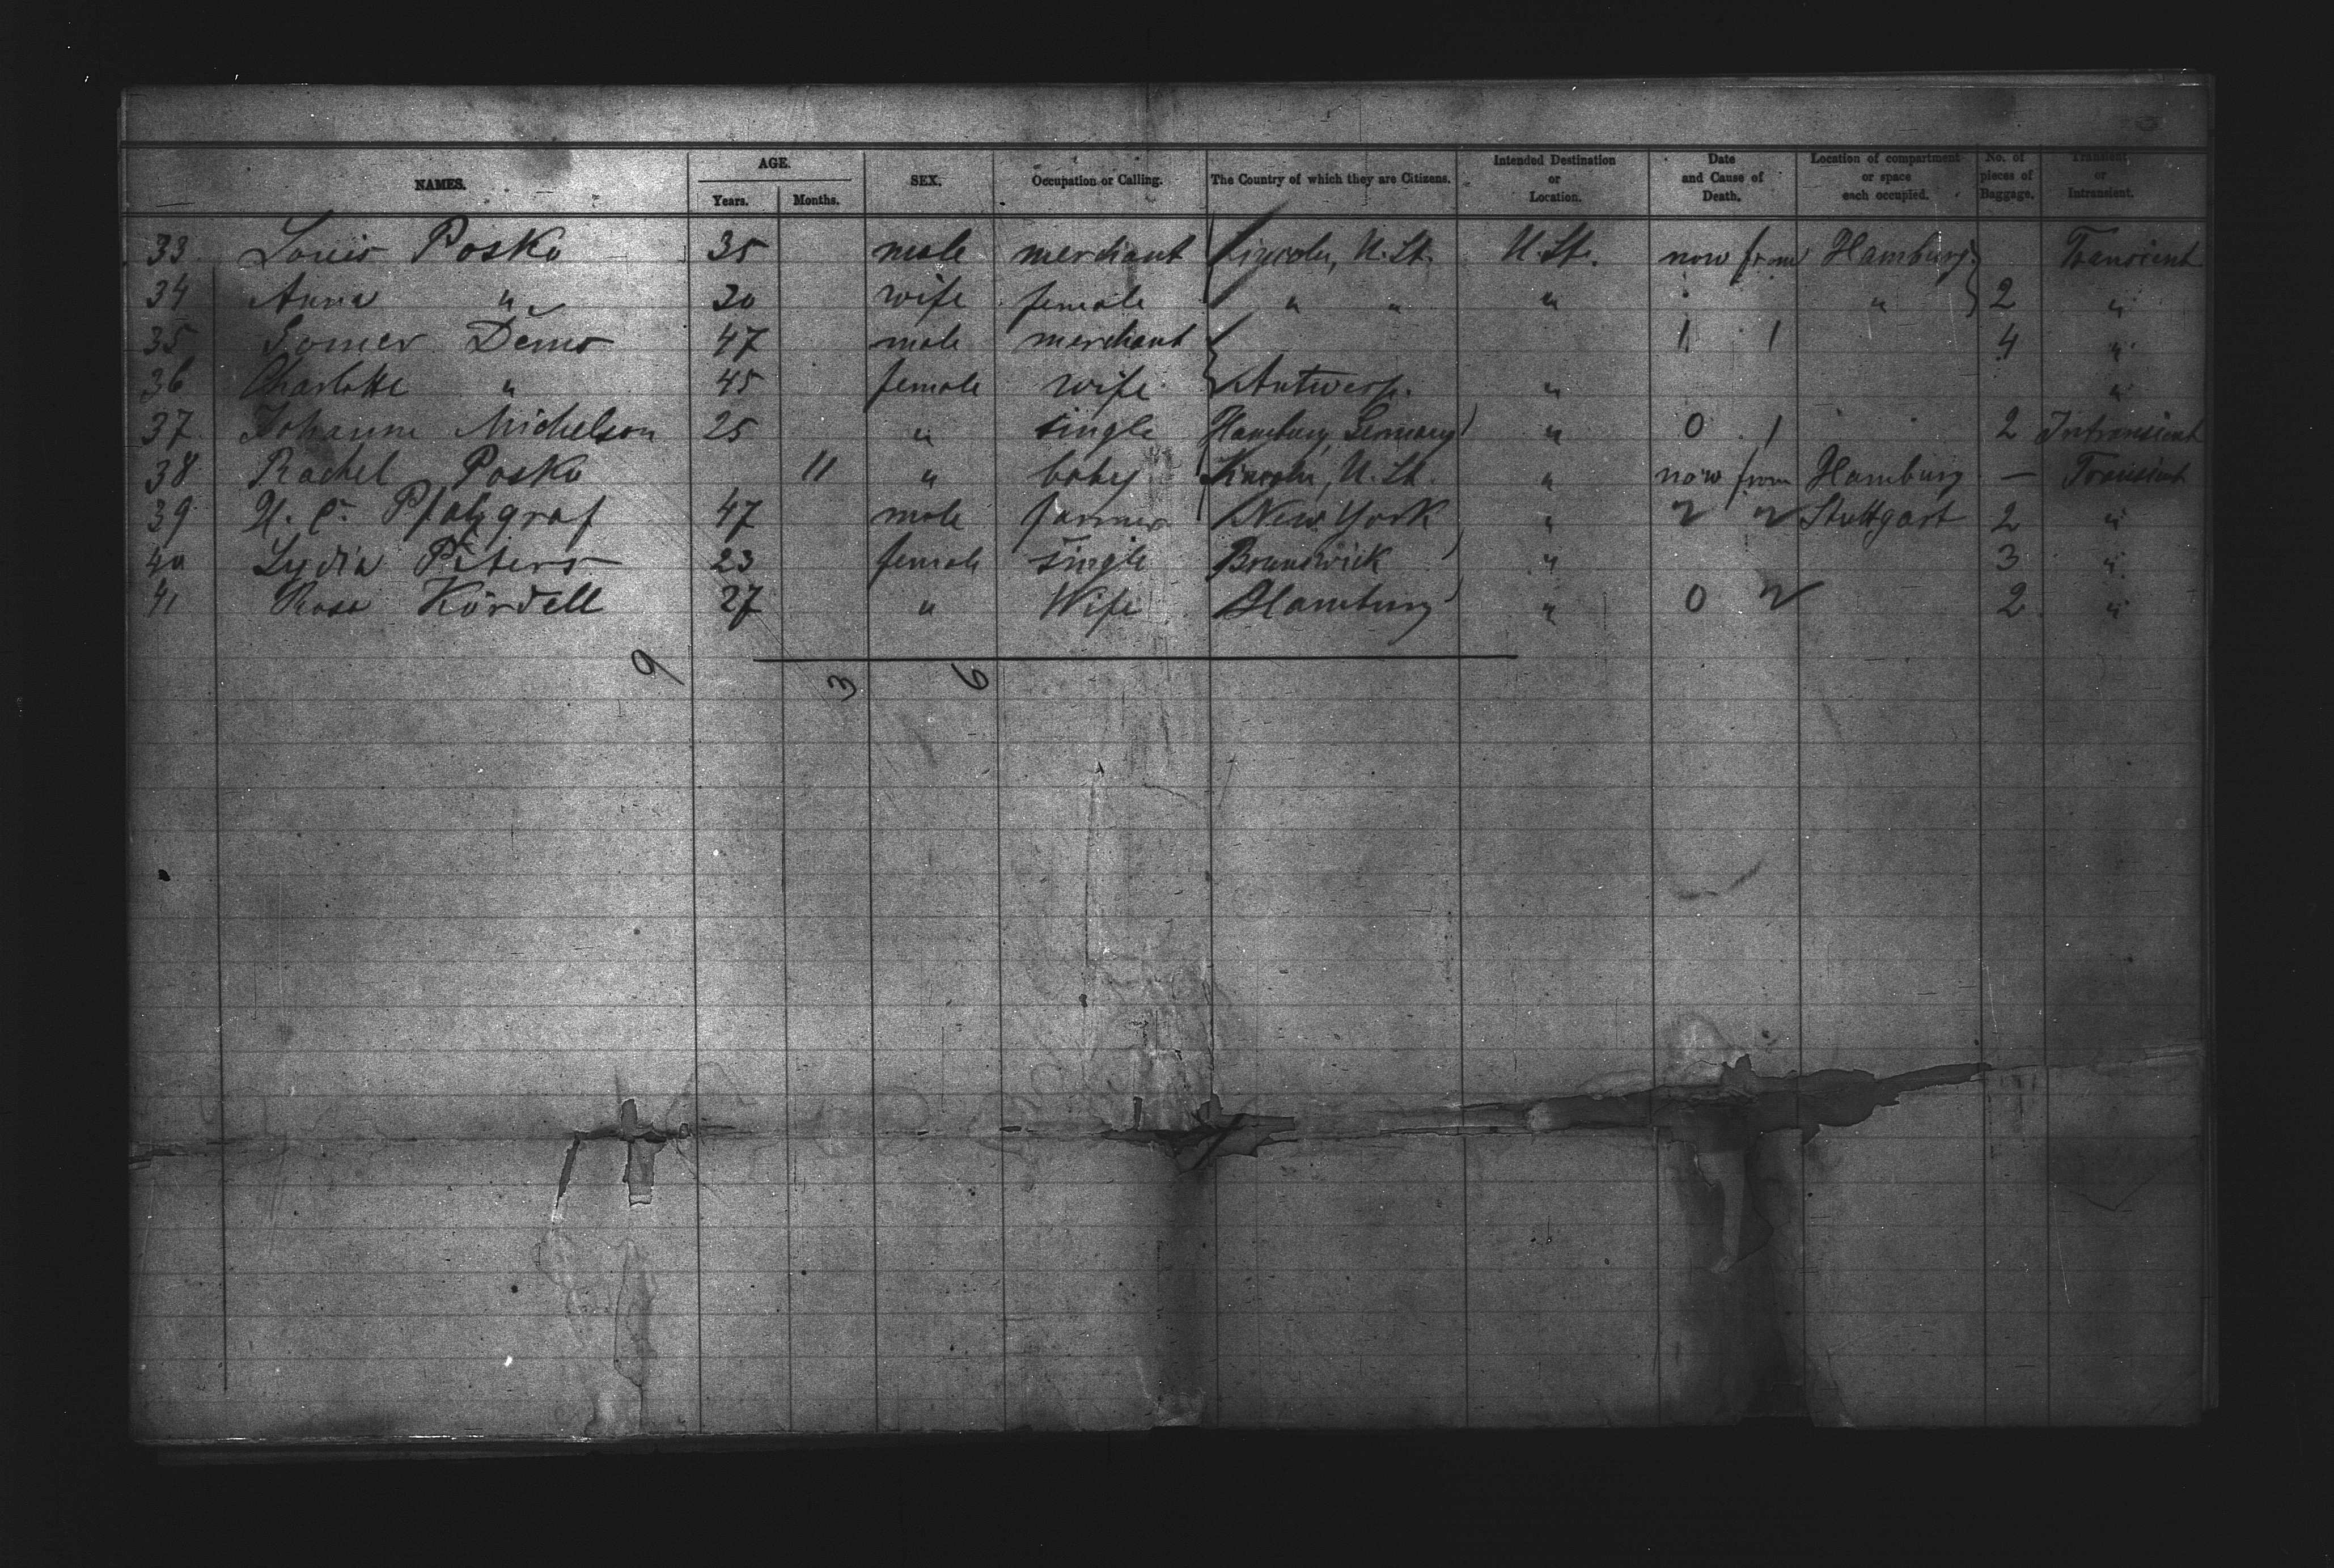 NAMES. AGE. Years. Months. SEX. Occupation or Calling. The Country of which they are Citizens. Intended Destination or Location. Date and Cause of Death. Location of compartment or space each occupied. No. of pieces of Baggage. Transient or Intransient.
33 Louis Posko 35 male merchant Lincoln, U.St. U.St. now from Hamburg Transient
34 Anna " 30 wife female " " " " 2 "
35 Demo 47 male merchant 1 1 4 "
36 Charlotte " 45 female wife Antwerp. " "
37 Johanne Michelson 25 " single Hamburg Germany " 0 1 2 Intransient
38 Rachel Posko 11 " baby Lincoln, U.St. " now from Hamburg — Transient
39 Pfalzgraf 47 male farmer New York " Stuttgart 2 "
40 Lydia Peters 23 female single Brunswick " 3 "
41 Rosa Kördell 27 " Wife Hamburg " 0 2 "
9 3 6